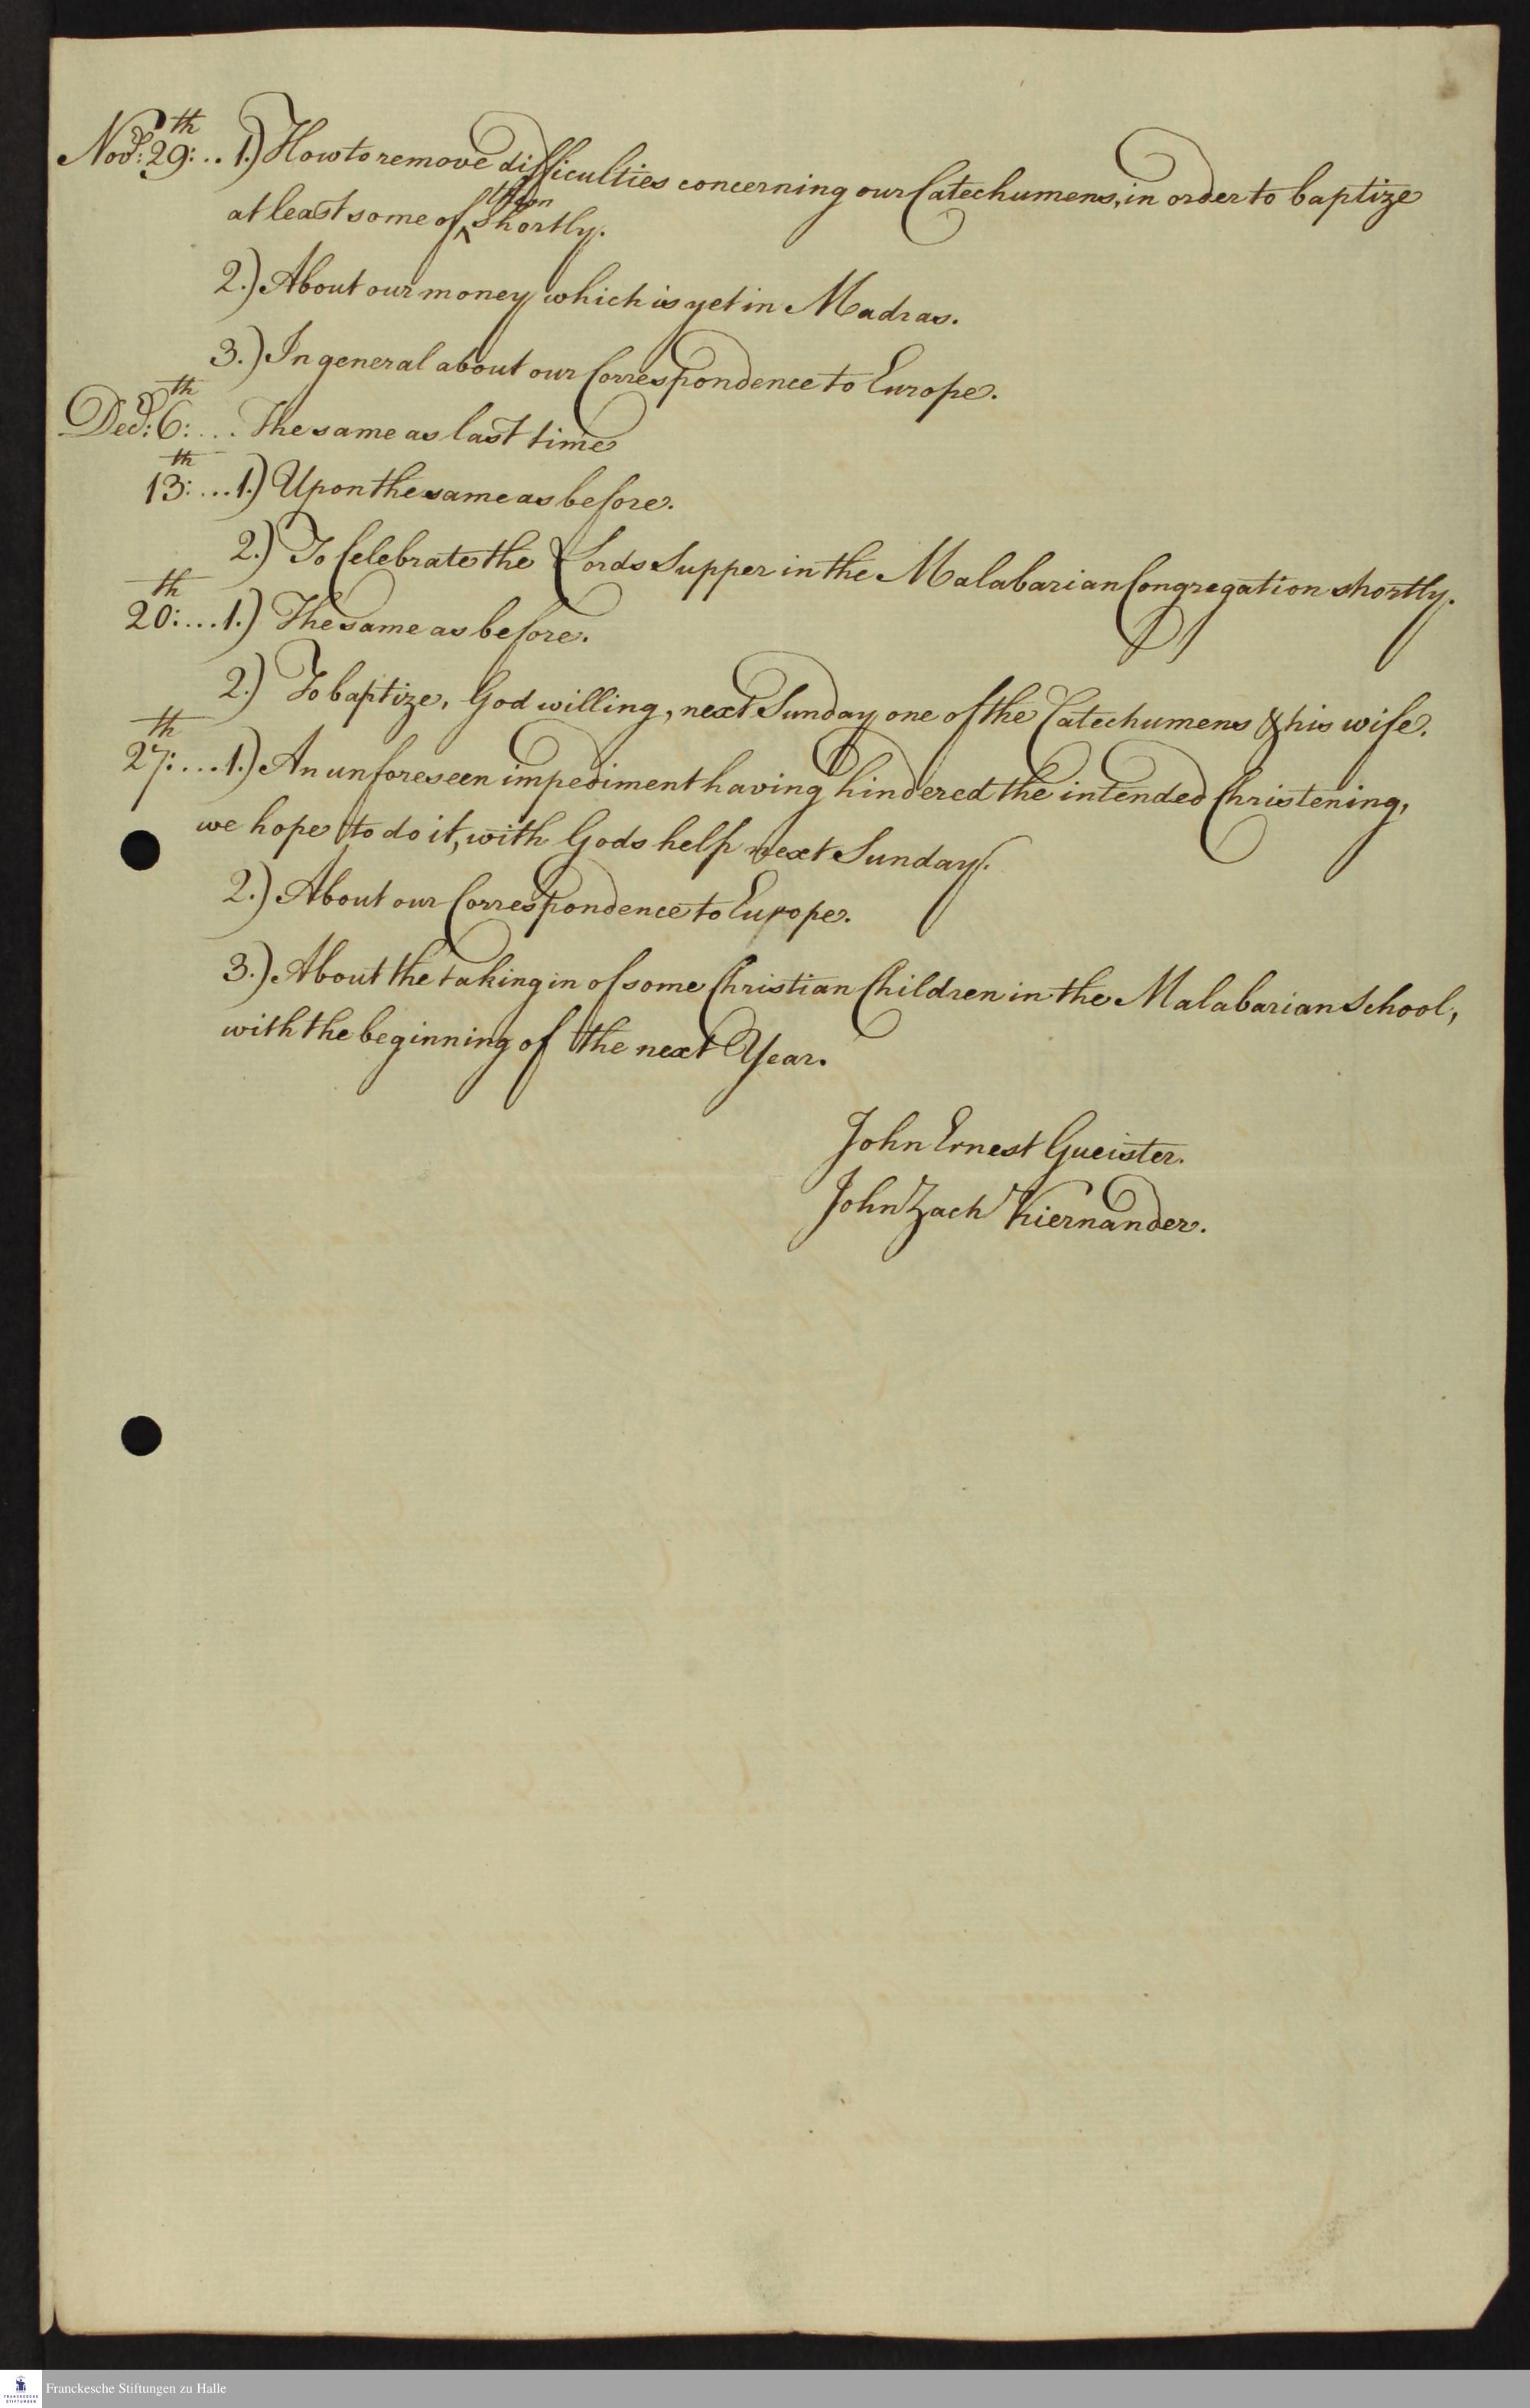 Novr: 29th: .. 1.) How to remove difficulties concerning our Catechumens, in order to baptize
at least some of them shortly.
2.) About our money which is yet in Madras.
3.) In general about our Correspondence to Europe.
Decr: 6th: ... The same as last time
13th: ... 1.) Upon the same as before.
2.) To Celebrate the Lords Supper in the Malabarian Congregation shortly.
20th: ... 1.) The same as before.
2.) To baptize, God willing, next Sunday one of the Catechumens & his wife.
27th: ... 1.) An unforeseen impediment having hindered the intended Christening,
we hope to do it, with Gods help next Sunday.
2.) About our Correspondence to Europe.
3.) About the taking in of some Christian Children in the Malabarian School,
with the beginning of the next Year.
John Ernest Gueister.
John Zach Kiernander.
FRANCKESCHE STIFTUNGEN
Franckesche Stiftungen zu Halle